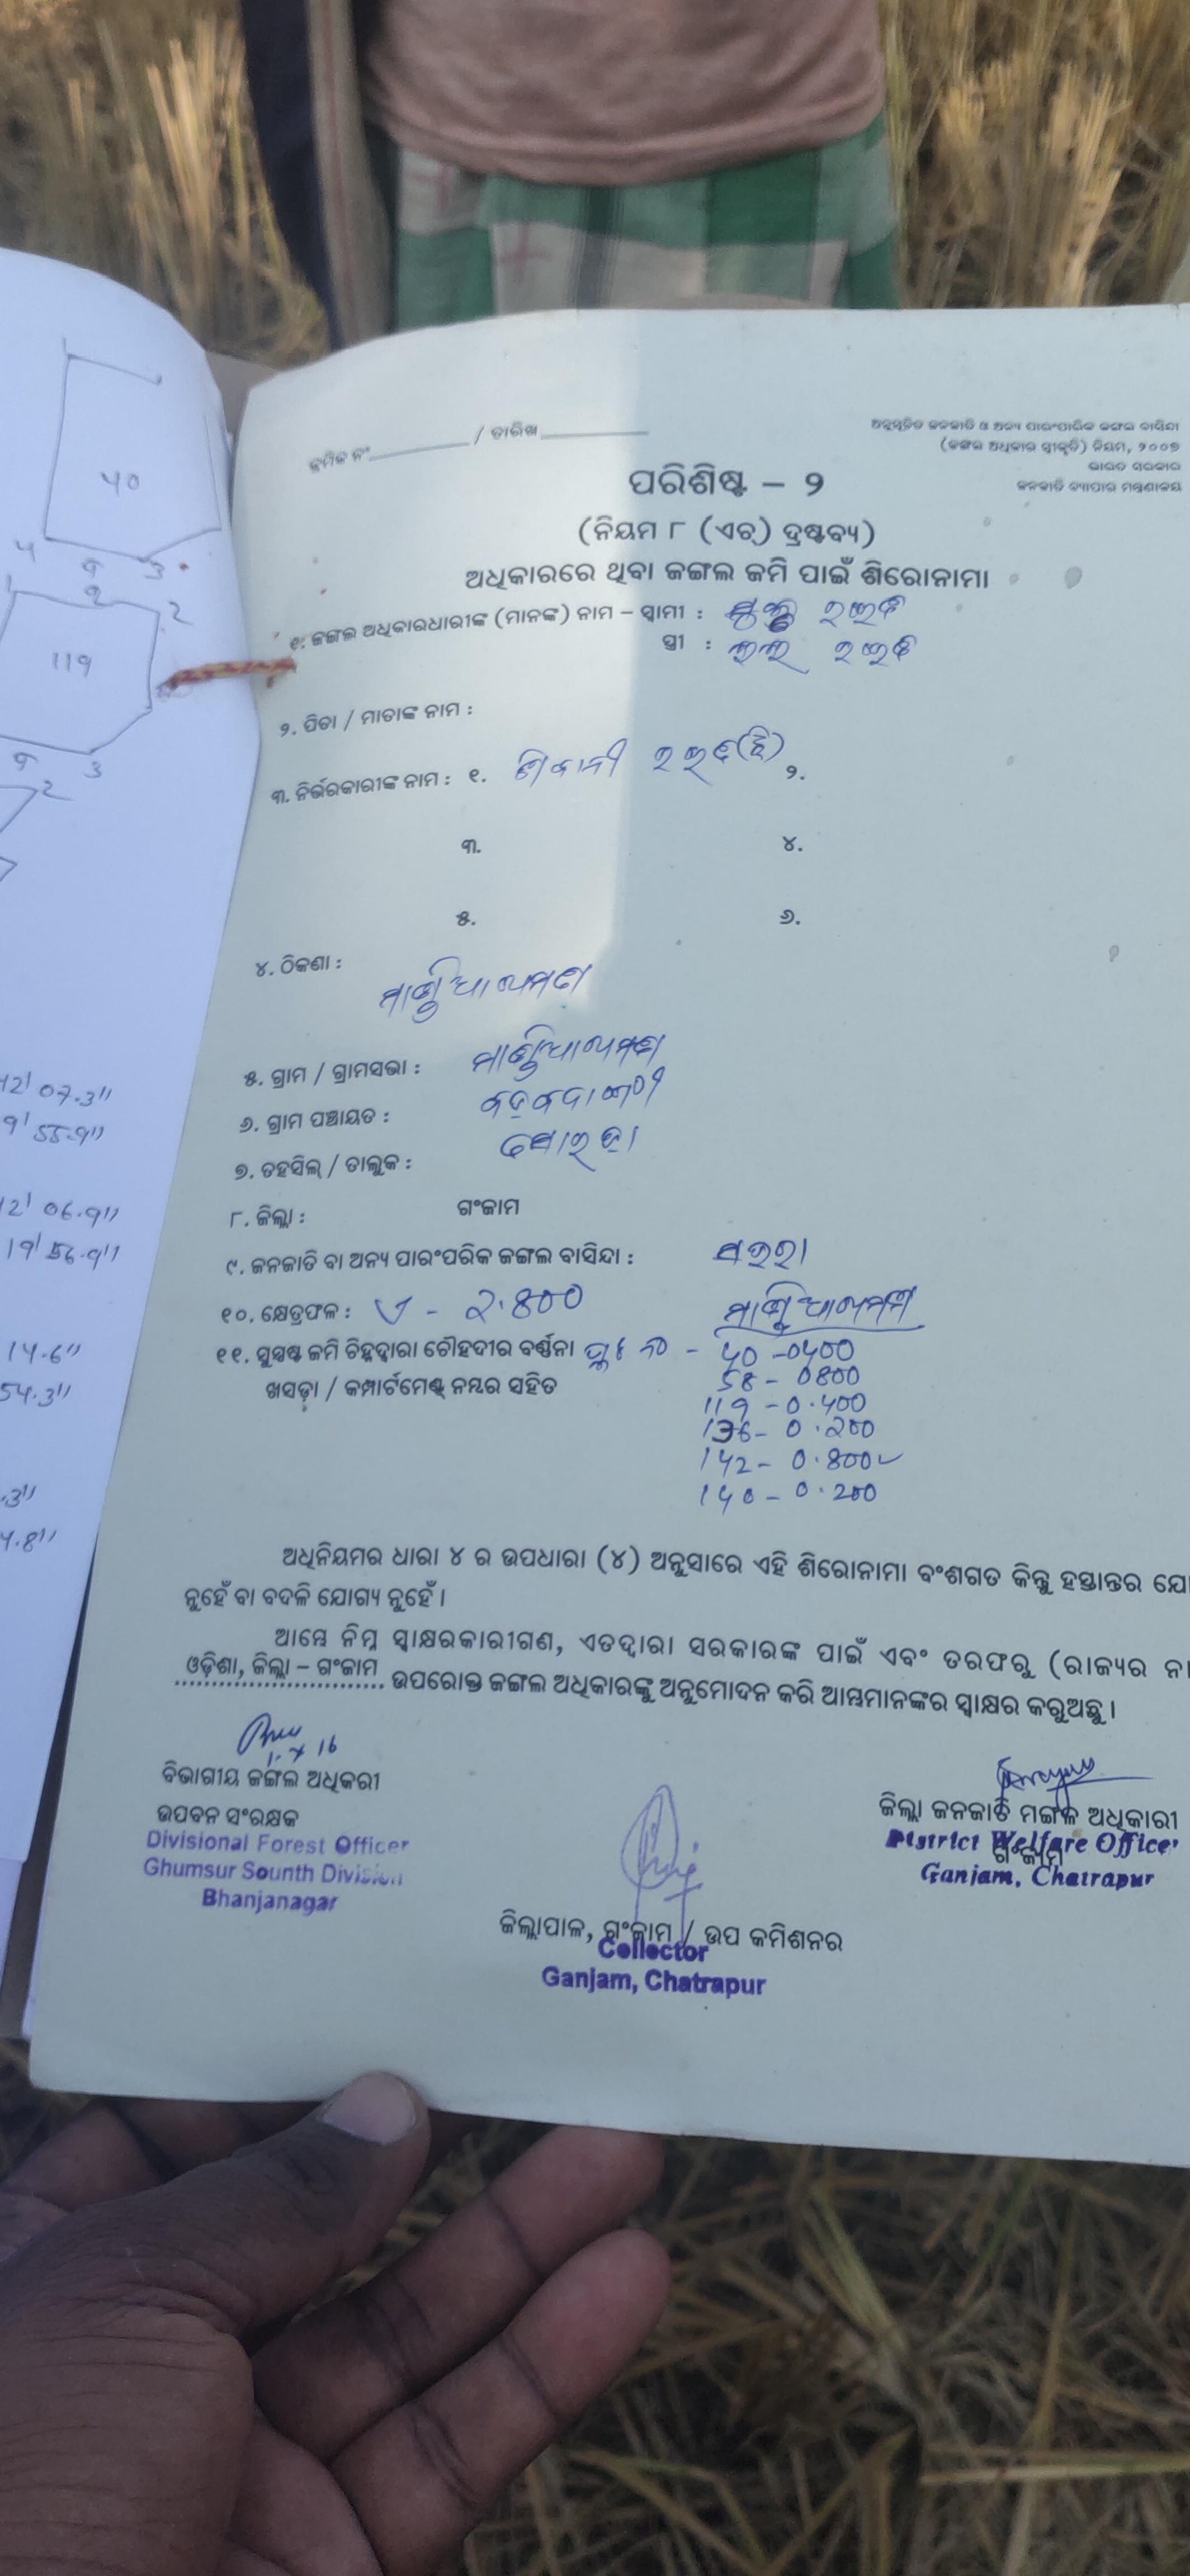 40
4
3
2
2
119
3
2
12' 07.3"
55.9"
12' 06.9"
19' 56.9"
14.6"
54.3"
.3"
4.8"
କ୍ରମିକ ନଂ / ତାରିଖ
ଅନୁସୂଚିତ ଜନଜାତି ଓ ଅନ୍ୟ ପାରଂପାରିକ ଜଙ୍ଗଲ ବାସିନ୍ଦା
(ଜଙ୍ଗଲ ଅଧିକାର ସ୍ୱୀକୃତି) ନିୟମ, ୨୦୦୭
ଭାରତ ସରକାର
ଜନଜାତି ବ୍ୟାପାର ମନ୍ତ୍ରଣାଳୟ
ପରିଶିଷ୍ଟ – ୨
(ନିୟମ ୮ (ଏଚ୍) ଦ୍ରଷ୍ଟବ୍ୟ)
ଅଧିକାରରେ ଥିବା ଜଙ୍ଗଲ ଜମି ପାଇଁ ଶିରୋନାମା
୧. ଜଙ୍ଗଲ ଅଧିକାରଧାରୀଙ୍କ (ମାନଙ୍କ) ନାମ – ସ୍ୱାମୀ :
ସ୍ତ୍ରୀ :
୨. ପିତା / ମାତାଙ୍କ ନାମ :
୩. ନିର୍ଭରକାରୀଙ୍କ ନାମ : ୧. (ଝି) ୨.
୩. ୪.
୫. ୬.
୪. ଠିକଣା :
୫. ଗ୍ରାମ / ଗ୍ରାମସଭା :
୬. ଗ୍ରାମ ପଞ୍ଚାୟତ :
୭. ତହସିଲ୍ / ତାଲୁକ :
୮. ଜିଲ୍ଲା : ଗଂଜାମ
୯. ଜନଜାତି ବା ଅନ୍ୟ ପାରଂପରିକ ଜଙ୍ଗଲ ବାସିନ୍ଦା :
୧୦. କ୍ଷେତ୍ରଫଳ : ଏ - 2.800
୧୧. ସୁସ୍ପଷ୍ଟ ଜମି ଚିହ୍ନଦ୍ୱାରା ଚୌହଦୀର ବର୍ଣ୍ଣନା ପ୍ଲଟ ନଂ - 40 - 0400
ଖସଡ଼ା / କମ୍ପାର୍ଟମେଣ୍ଟ ନମ୍ବର ସହିତ 58 - 0800
119 - 0.400
136 - 0.200
142 - 0.800
140 - 0.200
ଅଧିନିୟମର ଧାରା ୪ ର ଉପଧାରା (୪) ଅନୁସାରେ ଏହି ଶିରୋନାମା ବଂଶଗତ କିନ୍ତୁ ହସ୍ତାନ୍ତର ଯୋ
ନୁହେଁ ବା ବଦଳି ଯୋଗ୍ୟ ନୁହେଁ ।
ଆମ୍ଭେ ନିମ୍ନ ସ୍ୱାକ୍ଷରକାରୀଗଣ, ଏତଦ୍ୱାରା ସରକାରଙ୍କ ପାଇଁ ଏବଂ ତରଫରୁ (ରାଜ୍ୟର ନା
ଓଡ଼ିଶା, ଜିଲ୍ଲା – ଗଂଜାମ ଉପରୋକ୍ତ ଜଙ୍ଗଲ ଅଧିକାରଙ୍କୁ ଅନୁମୋଦନ କରି ଆମ୍ଭମାନଙ୍କର ସ୍ୱାକ୍ଷର କରୁଅଛୁ ।
ବିଭାଗୀୟ ଜଙ୍ଗଲ ଅଧିକରୀ
ଉପବନ ସଂରକ୍ଷକ
Divisional Forest Officer
Ghumsur Sounth Division
Bhanjanagar
ଜିଲ୍ଲାପାଳ, ଗଂଜାମ / ଉପ କମିଶନର
Collector
Ganjam, Chatrapur
ଜିଲ୍ଲା ଜନଜାତି ମଙ୍ଗଳ ଅଧିକାରୀ
ଗଂଜାମ
District Welfare Officer
Ganjam, Chatrapur